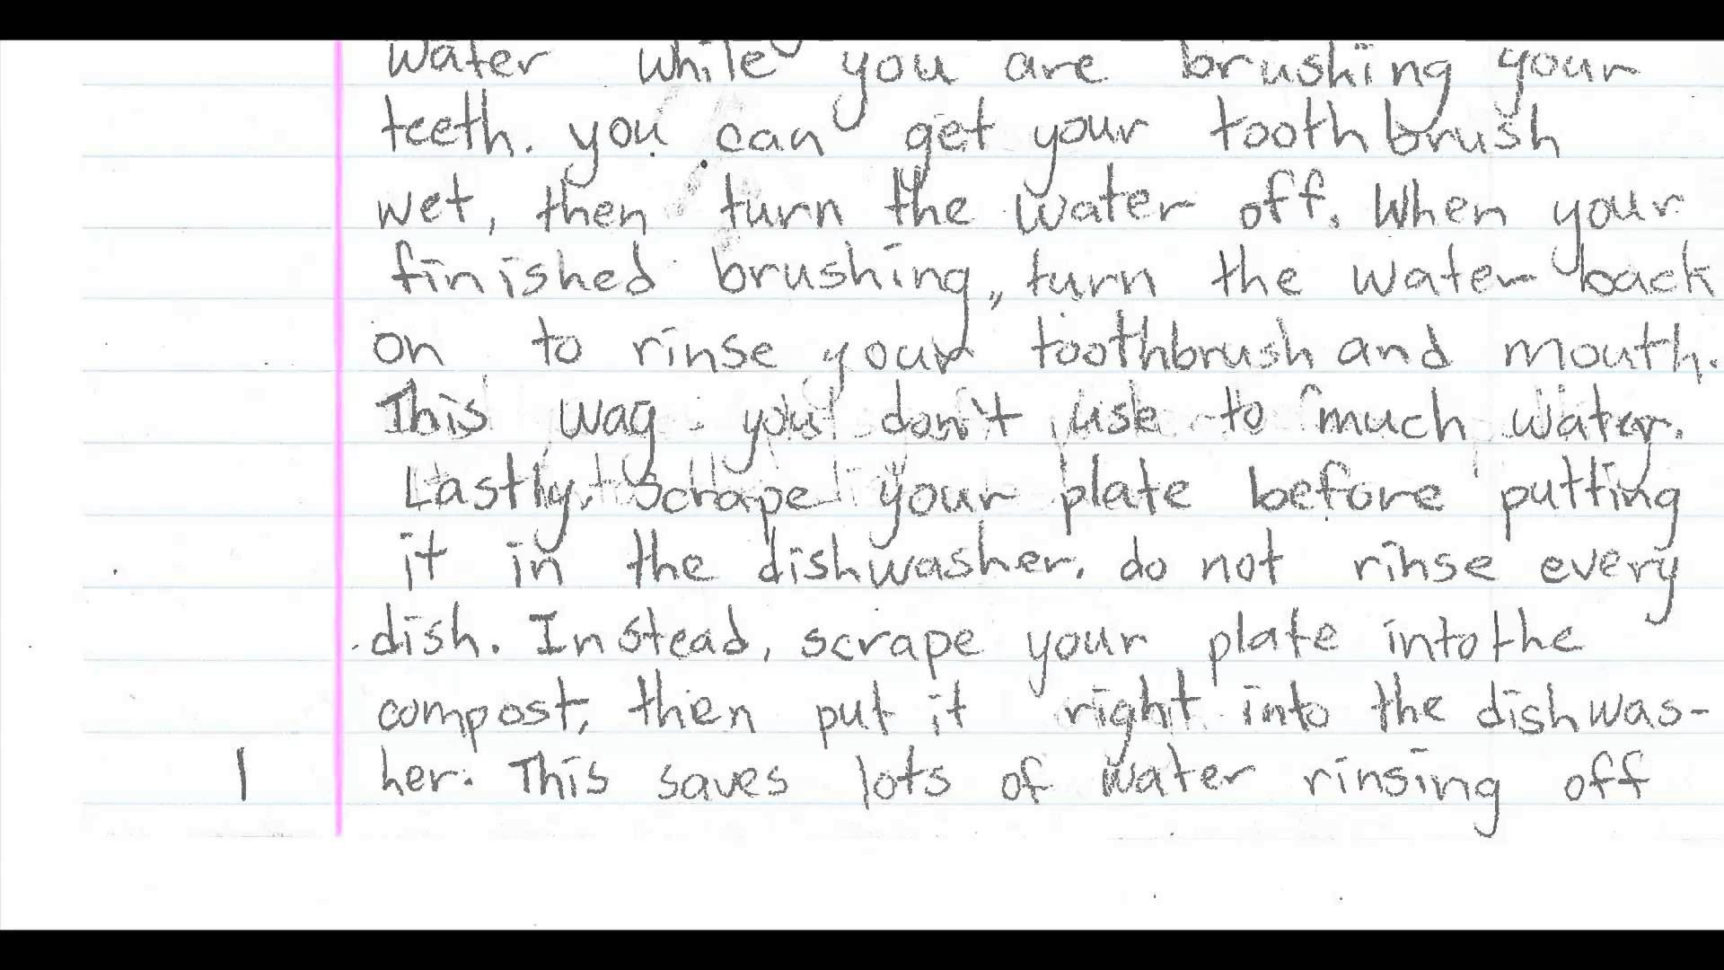 water while you are brushing your
teeth. you can get your toothbrush
wet, then turn the water off. When your
finished brushing, turn the water back
on to rinse your toothbrush and mouth.
This way you don't use to much water.
Lastly, scrape your plate before putting
it in the dishwasher. do not rinse every
dish. Instead, scrape your plate into the
compost, then put it right into the dishwas-
her. This saves lots of water rinsing off
1